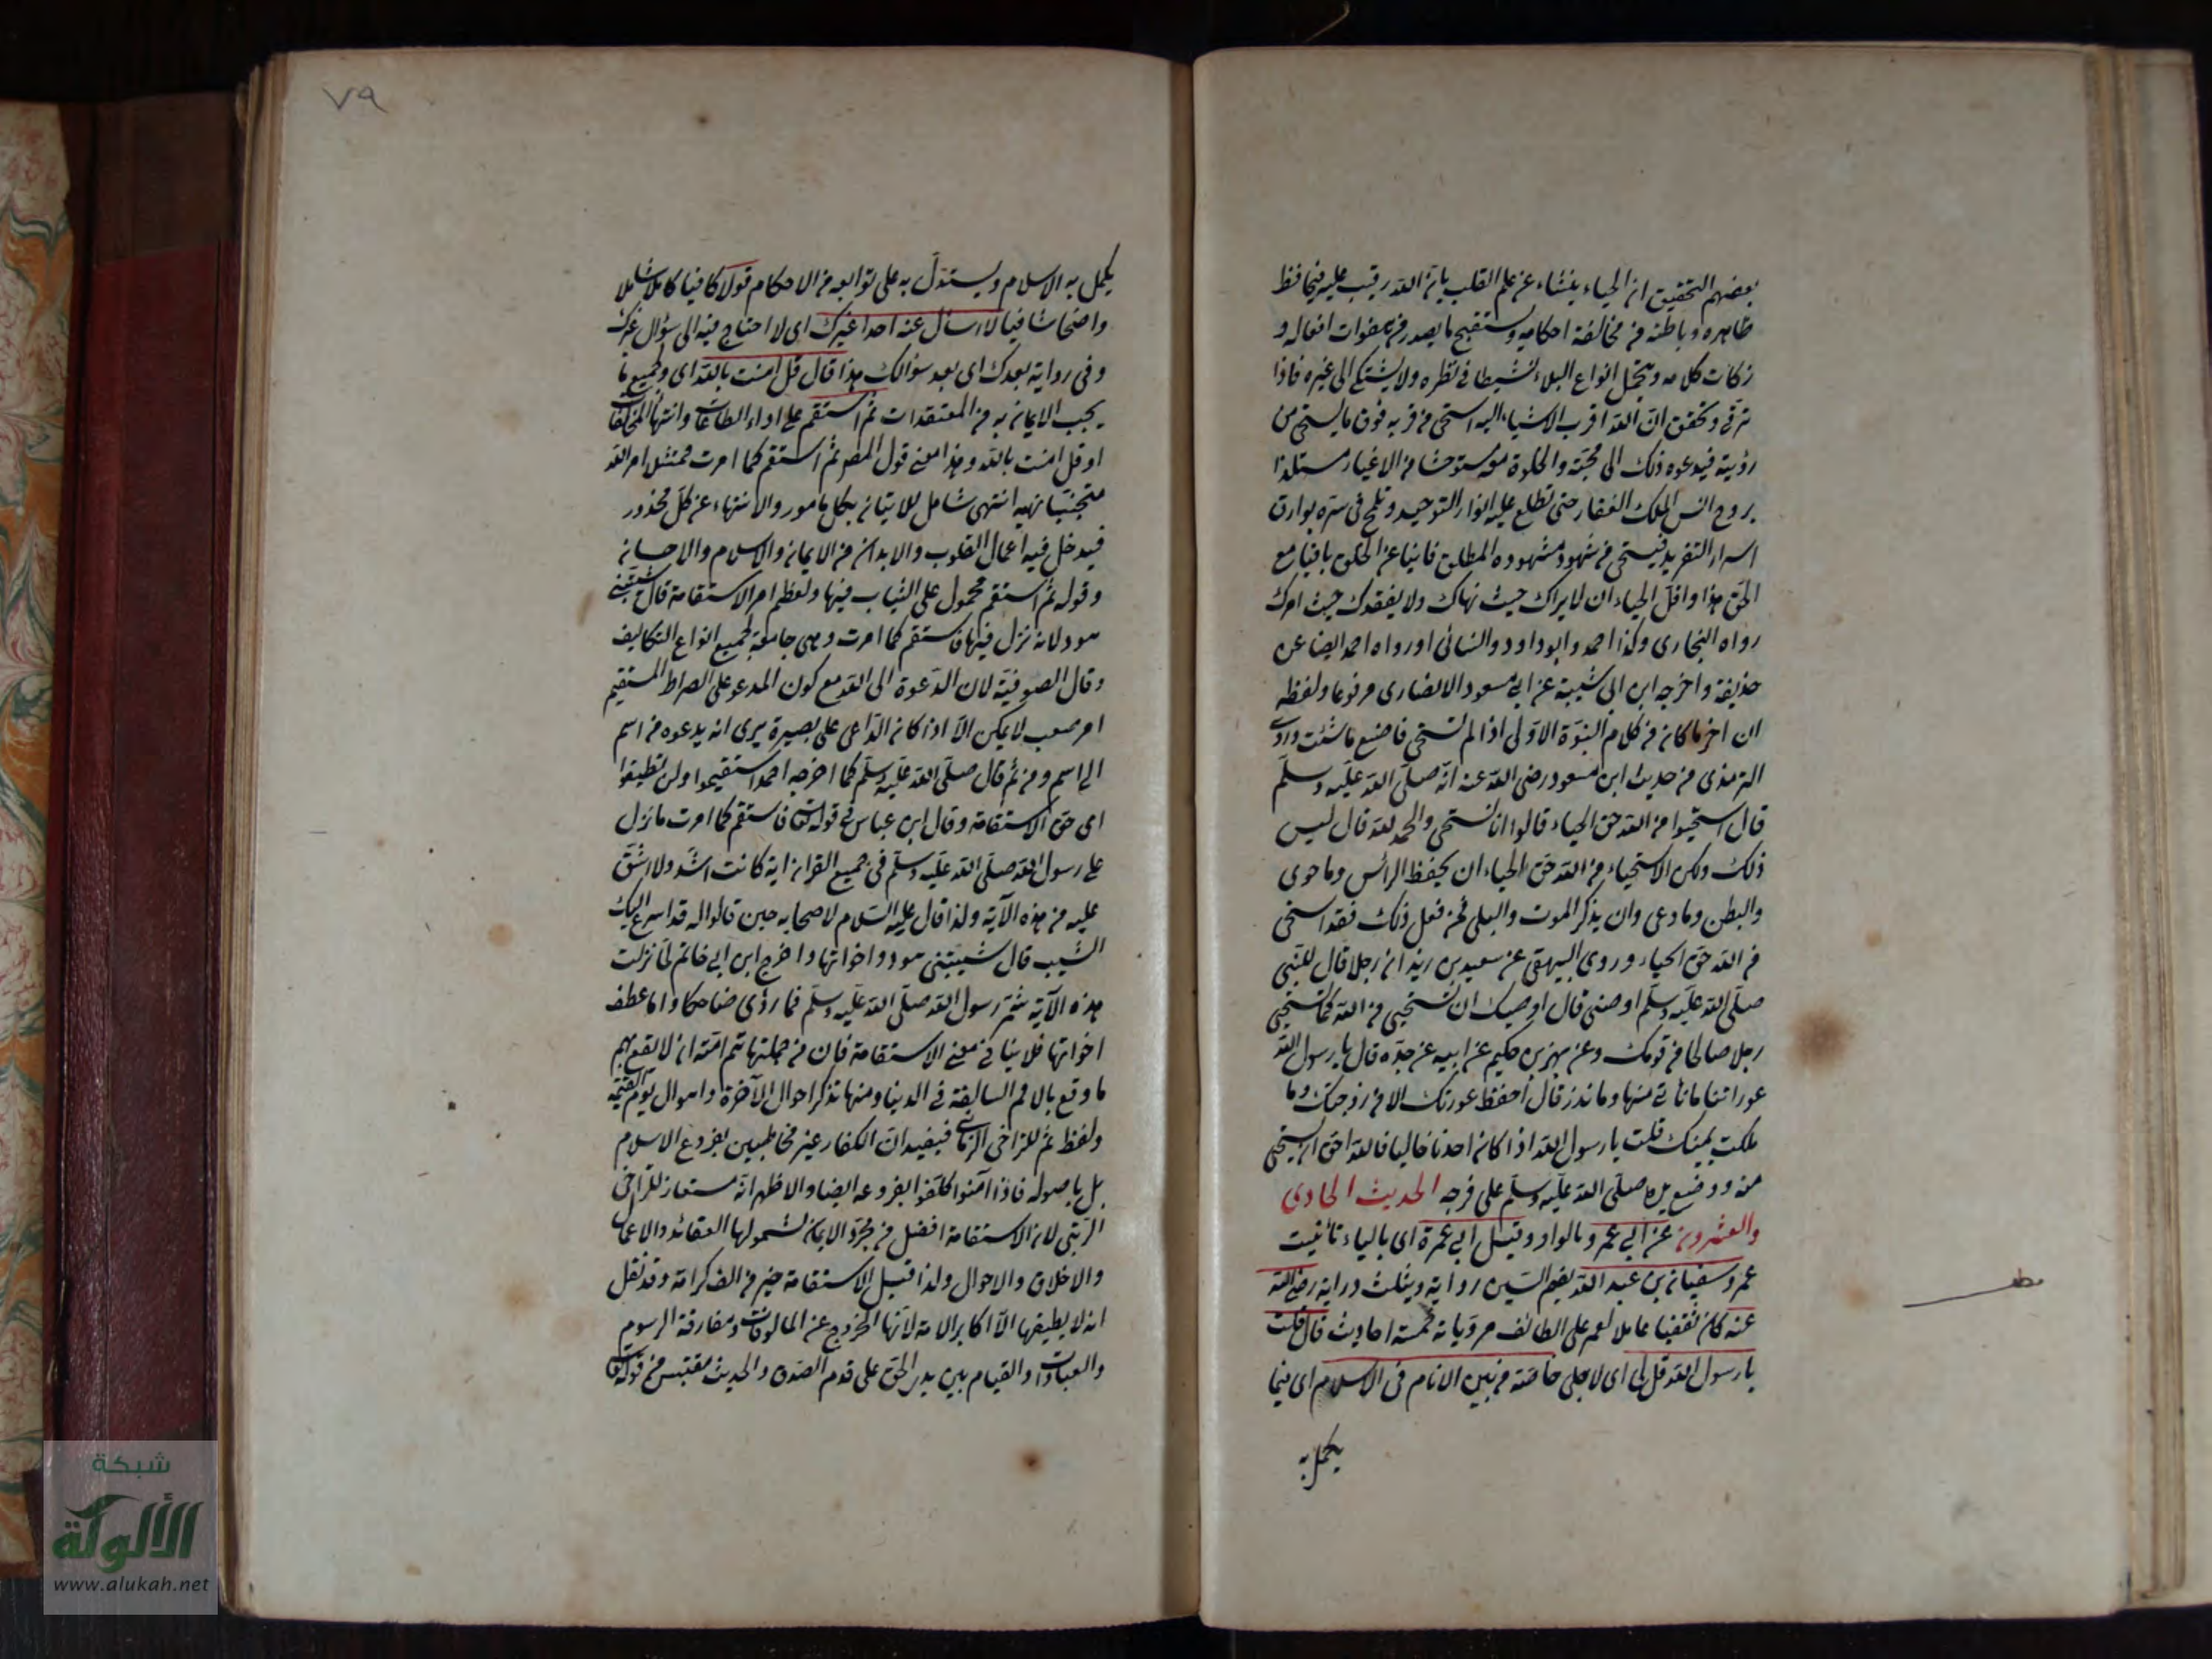 بعضهم التحقيق ان الحياء ينشاء عن علم القلب بان الله رقيب عليه فيحافظ
ظاهره وباطنه من مخالفة احكامه ويستقبح ما يصدر من هفوات افعاله و
زكات كلامه ويتحمل انواع البلاء نشيطا في نظره ولا يشتكي الى غيره فاذا
ترقى وتحقق ان الله اقرب الاشياء اليه استحى من قربه فوق ما يستحي من
رؤيته فيدعوه ذلك الى محبته والخلوة معه مستوحشا من الاغيار مستلذا
بروح انس الملك الغفار حتى تطلع عليه انوار التوحيد وتلمح في سره بوارق
اسراء التفريد فيستحي من شهود مشهوده المطلق فانيا عن الخلق باقيا مع
الحق هذا واقل الحياء ان لا يراك حيث نهاك ولا يفقدك حيث امرك
رواه البخاري وكذا احمد وابو داود والنسائي اورواه احمد ايضا عن
حذيفة واخرجه ابن ابي شيبة عن ابي مسعود الانصاري مرفوعا ولفظه
ان اخر ما كان من كلام النبوة الاولى اذا لم تستحي فاصنع ما شئت وروى
الترمذي من حديث ابن مسعود رضي الله عنه انه صلى الله عليه وسلم
قال استحيوا من الله حق الحياء قالوا انا نستحي والحمد لله قال ليس
ذلك ولكن الاستحياء من الله حق الحياء ان يحفظ الرأس وما حوى
والبطن وما وعى وان يذكر الموت والبلى فمن فعل ذلك فقد استحى
من الله حق الحياء وروى البيهقي عن سعيد بن زيد ان رجلا قال للنبي
صلى الله عليه وسلم اوصني قال اوصيك ان تستحيي من الله كما تستحيي
رجلا صالحا من قومك وعن بهز بن حكيم عن ابيه عن جده قال يا رسول الله
عوراتنا ما نأتي منها وما نذر قال احفظ عورتك الا من زوجتك وما
ملكت يمينك قلت يا رسول الله اذا كان احدنا خاليا فالله احق ان يستحي
منه ووضع يده صلى الله عليه وسلم على فرجه الحديث الحادي
والعشرون عن ابي عمرو بالواو وقيل ابي عمرة اى بالياء تأنيث
عمرو سفيان بن عبد الله بضم السين رواية ويثلث دراية رضي الله
عنه كان ثقفيا عاملا لعمر على الطائف مروياته خمسة احاديث قال قلت
يا رسول الله قل لي اى لاجلي خاصة من بين الانام في الاسلام اى فيما
يكمل به
مط
٧٩
يكمل به الاسلام ويستدل به على توابعه من الاحكام قولا كافيا كاملا شاملا
واضحا شافيا لا اسأل عنه احدا غيرك اى لا احتاج فيه الى سؤال غيرك
وفي رواية بعدك اى بعد سؤالك هذا قال قل امنت بالله اى وبجميع ما
يجب الايمان به من المعتقدات ثم استقم على اداء الطاعات وانتهاء المخالفات
او قل امنت بالله وهذا معنى قول المص ثم استقم كما امرت ممتثل امر الله
متجنبا نهيه انتهى شامل للاتيان بكل مامور والانتهاء عن كل محذور
فيدخل فيه اعمال القلوب والابدان من الايمان والاسلام والاحسان
وقوله ثم استقم محمول على الثبات فيها ولعظم امر الاستقامة قال شيبتني
هود لانه نزل فيها فاستقم كما امرت وهي جامعة لجميع انواع التكاليف
وقال الصوفية لان الدعوة الى الله مع كون المدعو على الصراط المستقيم
امر صعب لا يمكن الا اذا كان الداعي على بصيرة يرى انه يدعوه من اسم
الى اسم ومن ثم قال صلى الله عليه وسلم كما اخرجه احمد استقيموا ولن تطيقوا
اى حق الاستقامة وقال ابن عباس في قوله تعالى فاستقم كما امرت ما نزل
على رسول الله صلى الله عليه وسلم في جميع القران اية كانت اشد ولا اشق
عليه من هذه الآية ولذا قال عليه السلام لاصحابه حين قالوا له قد اسرع اليك
الشيب قال شيبتني هود واخواتها واخرج ابن ابي حاتم لما نزلت
هذه الآية شمر رسول الله صلى الله عليه وسلم فما رؤي ضاحكا واما عطف
اخواتها فلا ينافي معنى الاستقامة فان من جملتها تم امته ان لا يقع بهم
ما وقع بالامم السالفة في الدنيا ومنها تذكر احوال الآخرة واهوال يوم القيمة
ولفظ ثم للتراخي الزماني فيفيد ان الكفار غير مخاطبين بفروع الاسلام
بل باصوله فاذا آمنوا كلفوا بفروعه ايضا والاظهر انه مستعار للتراخي
الرتبي لان الاستقامة افضل من مجرد الايمان لشمولها العقائد والاعمال
والاخلاق والاحوال ولذا قيل الاستقامة خير من الف كرامة وقد نقل
انه لا يطيقها الا اكابر الامة لانها الخروج عن المالوفات ومفارقة الرسوم
والعادات والقيام بين يدي الحق على قدم الصدق والحديث مقتبس من قوله تعالى
شبكة
الألوكة
www.alukah.net